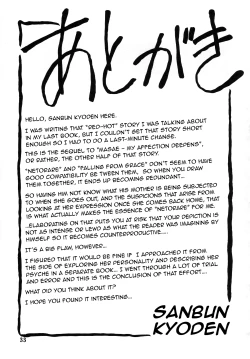 あとがき
HELLO, SANBUN KYODEN HERE.
I WAS WRITING THAT "RED-HOT" STORY I WAS TALKING ABOUT
IN MY LAST BOOK, BUT I COULDN'T GET THAT STORY SHORT
ENOUGH SO I HAD TO DO A LAST-MINUTE CHANGE.
THIS IS THE SEQUEL TO "MASAE - MY AFFECTION DEEPENS",
OR RATHER, THE OTHER HALF OF THAT STORY.
"NETORARE" AND "FALLING FROM GRACE" DON'T SEEM TO HAVE
GOOD COMPATIBILITY BETWEEN THEM, SO WHEN YOU DRAW
THEM TOGETHER, IT ENDS UP BECOMING REDUNDANT...
SO HAVING HIM NOT KNOW WHAT HIS MOTHER IS BEING SUBJECTED
TO WHEN SHE GOES OUT, AND THE SUSPICIONS THAT ARISE FROM
LOOKING AT HER EXPRESSION ONCE SHE COMES BACK HOME, THAT
IS WHAT ACTUALLY MAKES THE ESSENCE OF "NETORARE" FOR ME.
...ELABORATING ON THAT PUTS YOU AT RISK THAT YOUR DEPICTION IS
NOT AS INTENSE OR LEWD AS WHAT THE READER WAS IMAGINING BY
HIMSELF SO IT BECOMES COUNTERPRODUCTIVE.....
IT'S A BIG FLAW, HOWEVER...
I FIGURED THAT IT WOULD BE FINE IF I APPROACHED IT FROM
THE SIDE OF EXPLORING HER PERSONALITY AND DESCRIBING HER
PSYCHE IN A SEPARATE BOOK... I WENT THROUGH A LOT OF TRIAL
AND ERROR AND THIS IS THE CONCLUSION OF THAT EFFORT....
WHAT DID YOU THINK ABOUT IT?
I HOPE YOU FOUND IT INTERESTING...
SANBUN
KYODEN
33